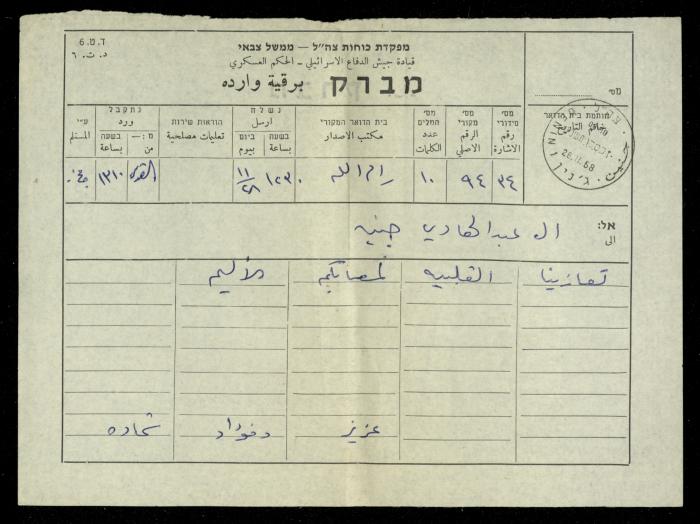 ד.ט.6
د.ت.٦
מפקדת כוחות צה"ל — ממשל צבאי
قيادة جيش الدفاع الاسرائيلي - الحكم العسكري
מברק برقية وارده
מס'
חותמת בית הדואר
מס' סידורי رقم الاشارة
מס' מקורי الرقم الاصلي
מס' המלים عدد الكلمات
בית הדואר המקורי مكتب الاصدار
נשלח ارسل
בשעה بساعة
ביום بيوم
הוראות שירות تعليمات مصلحية
נתקבל ورد
מ:— من
בשעה بساعة
ע"י المستلم
٣٤ ٩٤ ١٠ رام الله ١٢٣٠ ١١/٢٨ القدس ١٣١٠
JENIN 28.11.68 ג'נין جنين
אל: ال عبد الهادي جنين
الى
تعازينا القلبيه لمصابكم الأليم
عزيز وفؤاد شحاده